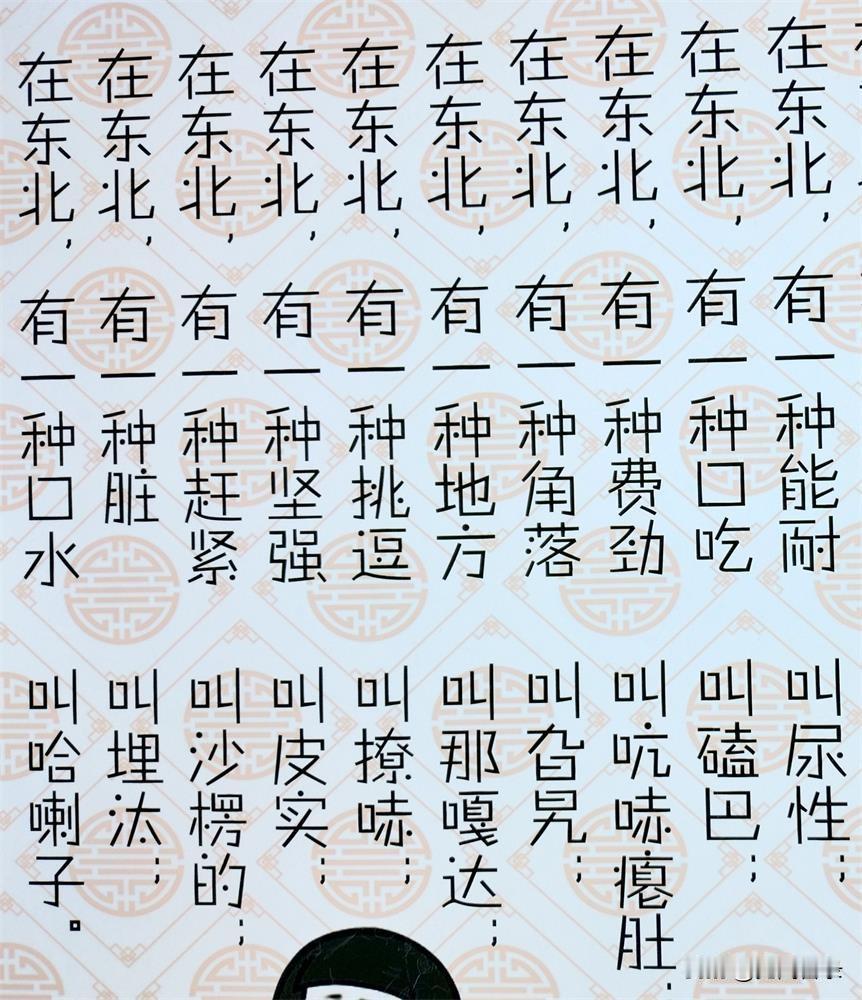 在东北,有一种能耐叫尿性;
在东北,有一种口吃叫磕巴;
在东北,有一种费劲叫吭哧瘪肚;
在东北,有一种角落叫旮旯;
在东北,有一种地方叫那嘎达;
在东北,有一种挑逗叫撩哧;
在东北,有一种坚强叫皮实;
在东北,有一种赶紧叫沙楞的;
在东北,有一种脏叫埋汰;
在东北,有一种口水叫哈喇子。